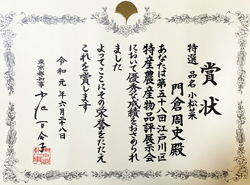 賞状
特選 品名 小松菜
門倉周史殿
あなたは第五十八回江戸川区
特産農産物品評展示会
において優秀な成績をおさめられ
ました
よってここにその栄誉をたたえ
これを賞します
令和元年六月二十八日
東京都知事 小池百合子